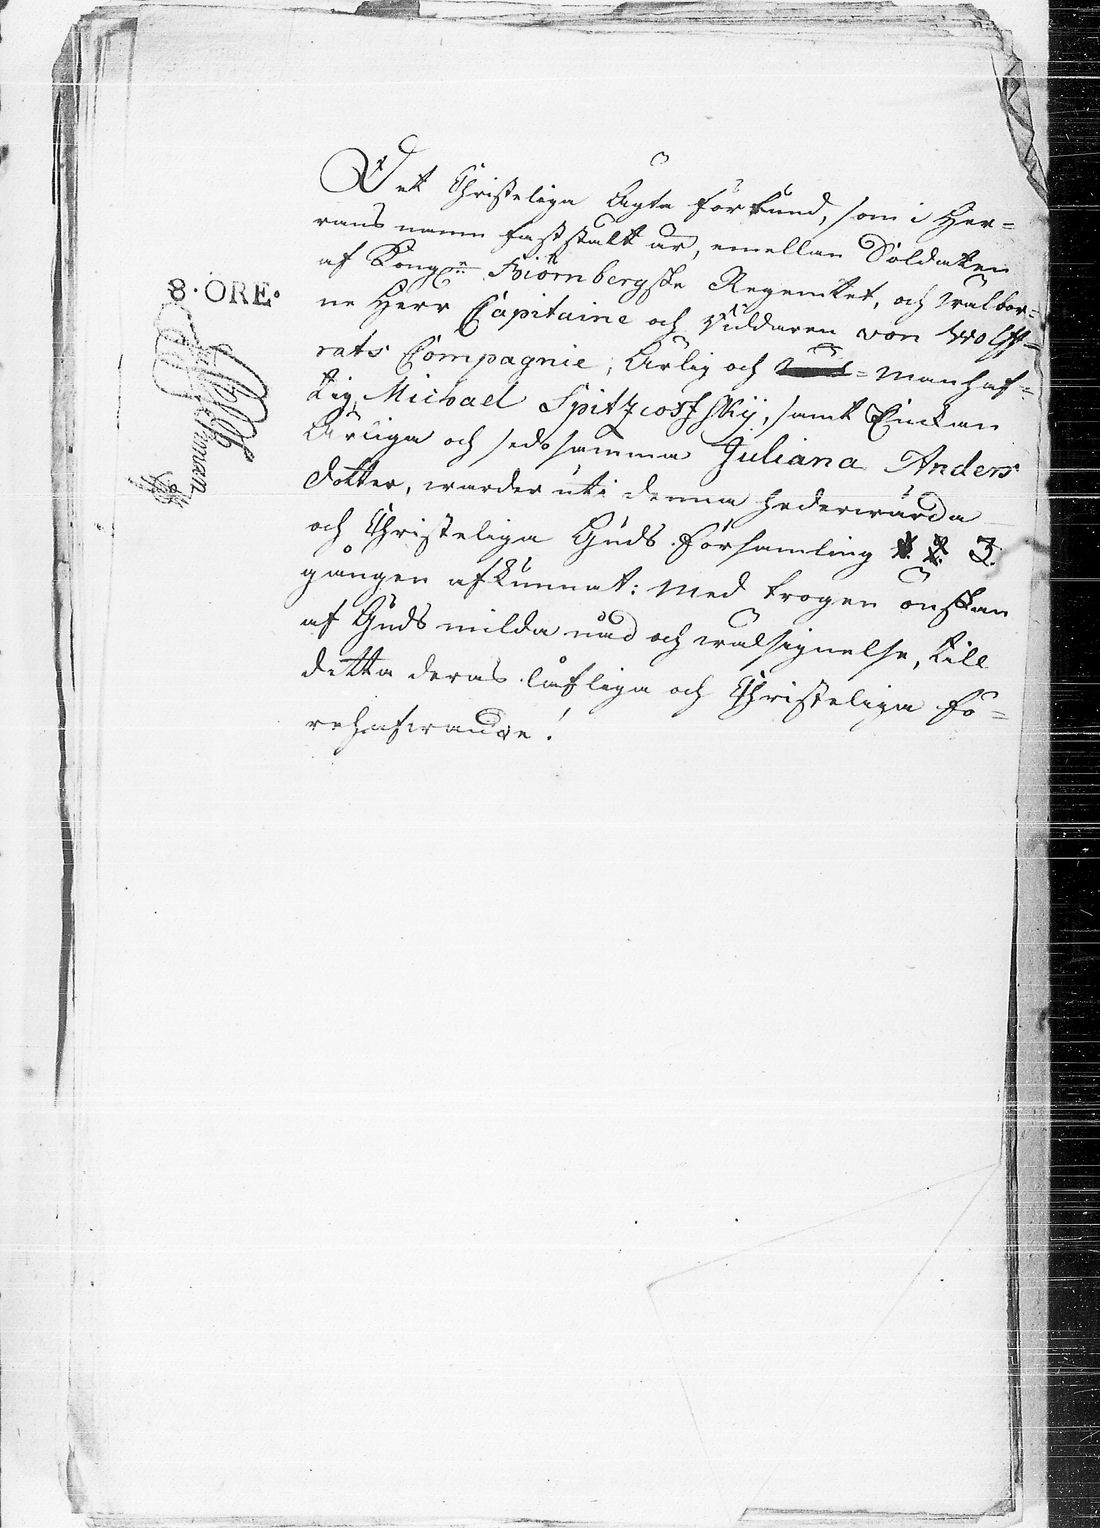 Det Christeliga Ägta förbund, som i Her=
rans namn fastställt är, emellan Soldaten
af Kongl: Biörnbergske Regemtet, och Wälbor=
ne Herr Capitaine och Riddaren von Wolff=
rats Compagnie; Ärlig och = Manhaf=
tig Michael Spitzcoffskij, samt Enckan
Ärliga och sedesamma Juliana Anders
dotter, warder uti denna hederwärda
och Christeliga Guds församling 3.
gången afkunnat: med trogen önskan
af Guds milda nåd och wälsignelse, till
detta deras låfliga och Christeliga fö=
rehafwande!
8·ORE·